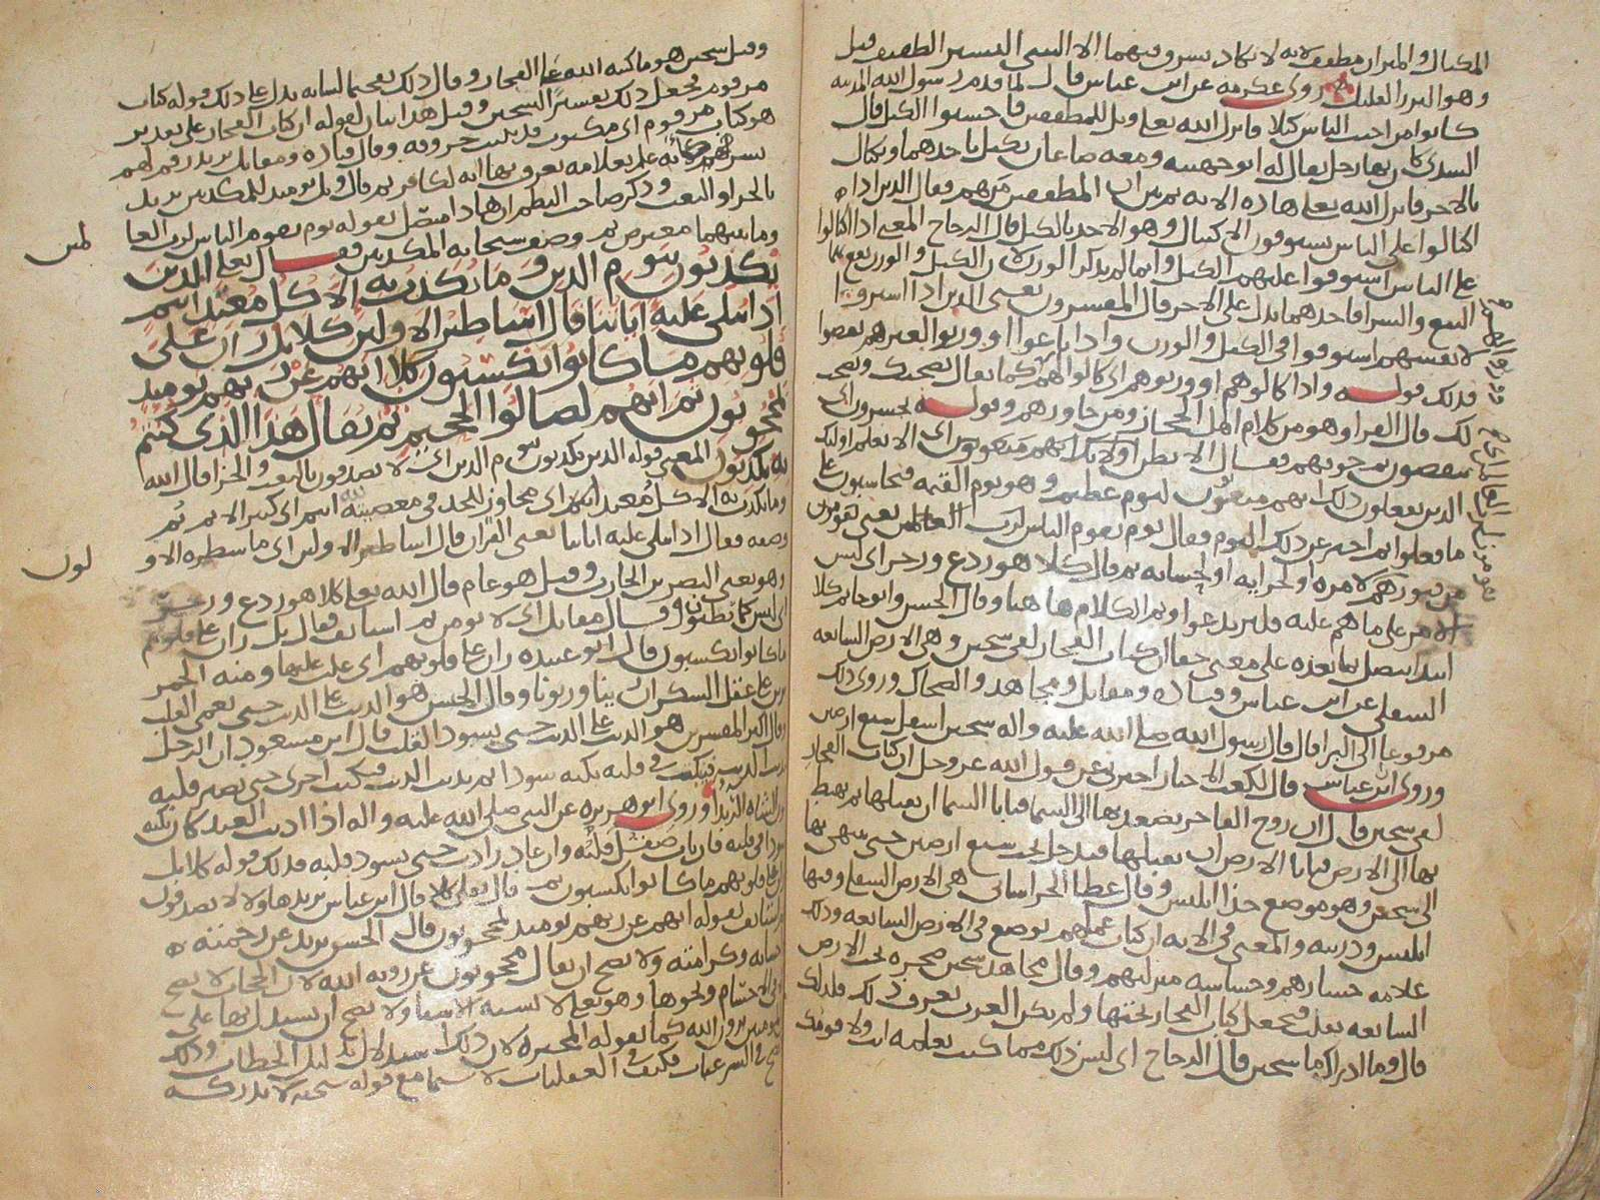 المكيال والميزان مطفف لانه لا يكاد يسرق فيهما الا الشي اليسير الطفيف قيل
وهو النزر القليل روى عكرمه عن ابن عباس قال لما قدم رسول الله المدينه
كانوا من اخبث الناس كيلا فانزل الله تعالى ويل للمطففين فاحسنوا الكيل قال
السدى كان بها رجل يقال له ابو جهينه ومعه صاعان يكيل باحدهما ويكتال
بالاخر فانزل الله تعالى هذه الايه ثم بين ان المطففين من هم فقال الذين اذا
اكتالوا على الناس يستوفون الاكتيال وهو الاخذ بالكيل قال الزجاج المعنى اذا اكتالوا
على الناس استوفوا عليهم الكيل وانما لم يذكر الوزن لان الكيل والوزن بهما
البيع والشرا فاحدهما يدل على الاخر قال المفسرون يعنى الذين اذا اشتروا
لانفسهم استوفوا فى الكيل والوزن واذا باعوا او وزنوا لغيرهم نقصوا
فذلك قوله واذا كالوهم او وزنوهم اى كالوا لهم كما يقال نصحتك ونصحت
لك قال الفرا وهو من كلام اهل الحجاز ومن جاورهم وقوله يخسرون اى
ينقصون ثم خوفهم فقال الا يظن اولايك انهم مبعوثون اى الا يعلم اوليك
الذين يفعلون ذلك انهم مبعوثون ليوم عظيم وهو يوم القيمه فيحاسبون على
ما فعلوا ثم اخبر عن ذلك اليوم فقال يوم يقوم الناس لرب العالمين يعنى يقومون
من قبورهم لامره او لجزايه او لحسابه ثم قال كلا هو ردع وزجر اى ليس
الامر على ما هم عليه فليرتدعوا وتم الكلام هاهنا وقال الحسن وابو حاتم كلا
ابتدا يتصل بما بعده على معنى حقا ان كتاب الفجار لفى سجين وهى الارض السابعه
السفلى عن ابن عباس وقتاده ومقاتل ومجاهد والضحاك وروى ذلك
مرفوعا الى البرا قال قال رسول الله صلى الله عليه واله سجين اسفل سبع ارضين
وروى ابن عباس قال لكعب الاحبار اخبرنى عن قول الله عز وجل ان كتاب الفجار
لفى سجين قال ان روح الفاجر يصعد بها الى السما فتابا السما ان يقبلها ثم يهبط
بها الى الارض فتابا الارض ان يقبلها فيدخل تحت سبع ارضين حتى ينتهى بها
الى سجين وهو موضع خد ابليس وقال عطا الخراسانى هى الارض السفلى وفيها
ابليس وذريته والمعنى فى الايه ان كتاب عملهم يوضع فى الارض السابعه وذلك
علامه خسارهم وخساسه منزلتهم وقال مجاهد سجين صخره تحت الارض
السابعه تقلب فيجعل كتاب الفجار تحتها ولم تكن العرب تعرف ذلك فلذلك
قال وما ادراك ما سجين قال الزجاج اى ليس ذلك مما كنت تعلمه انت ولا قومك
وقيل سجين هو ما كتبه الله على الفجار وقال ذلك تفخيما لشانه يدل على ذلك قوله كتاب
مرقوم فجعل ذلك تفسيرا لسجين وقيل هذا بيان لقوله ان كتاب الفجار على تقدير
هو كتاب مرقوم اى مكتوب قد بينت حروفه وقال قتاده ومقاتل يريد رقم لهم
بشر كانه علم بعلامه يعرف بها انه لكافر ثم قال ويل يوميذ للمكذبين يريد
بالجزا والبعث وذكر صاحب النظم ان هذا متصل بقوله يوم يقوم الناس لرب العا
لمين
وما بينهما معترض ثم وصف سبحانه المكذبين فقال تعالى الذين
يكذبون بيوم الدين وما يكذب به الا كل معتد اثيم
اذا تتلى عليه اياتنا قال اساطير الاولين كلا بل ران على
قلوبهم ما كانوا يكسبون كلا انهم عن ربهم يوميذ
لمحجوبون ثم انهم لصالوا الجحيم ثم يقال هذا الذى كنتم
به تكذبون المعنى قوله الذين يكذبون بيوم الدين اى لا يصدقون بالبعث والجزا قال الله
وما يكذب به الا كل معتد اثيم اى مجاوز للحد فى معصيته اثيم اى كثير الاثم ثم
وصفه فقال اذا تتلى عليه اياتنا يعنى القران قال اساطير الاولين اى ما سطره الاو
لون
وهو يعنى النضر بن الحارث وقيل هو عام قال الله تعالى كلا هو ردع وزجر
اى ليس كما تظنون وقال مقاتل اى لا يومن ثم استانف فقال بل ران على قلوبهم
ما كانوا يكسبون قال ابو عبيده ران على قلوبهم اى غلب عليها ومنه الخمر
ترين على عقل السكران رينا وريونا وقال الحسن هو الذنب على الذنب حتى يعمى القلب
وقال اكثر المفسرين هو الذنب على الذنب حتى يسود القلب قال ابن مسعود ان الرجل
يذنب الذنب فينكت فى قلبه نكته سودا ثم يذنب الذنب فينكت اخرى حتى يصير قلبه
الشاه الربدا وروى ابو هريره عن النبى صلى الله عليه واله اذا اذنب العبد كان نكته
سودا فى قلبه فان تاب صقل قلبه وان عاد زادت حتى يسود قلبه فذلك قوله كلا بل
ران على قلوبهم ما كانوا يكسبون ثم قال تعالى كلا قال ابن عباس يريد ها ولا لا يصدقون
واستانف بقوله انهم عن ربهم يوميذ لمحجوبون قال الحسن يريد عن رحمته
وكرامته ولا يصح ان يقال محجوبون عن رويه الله لان الحجاب لا يصح
الا فى الاجسام ونحوها وهو تعالى لا تشبه الاشيا ولا يصح ان يستدل بها على
المومنين يرون الله كما يقوله المجبره لان ذلك استدلال بدليل الخطاب وذلك
فى الشرعيات فكيف فى العقليات لا سيما مع قوله سبحانه لا تدركه